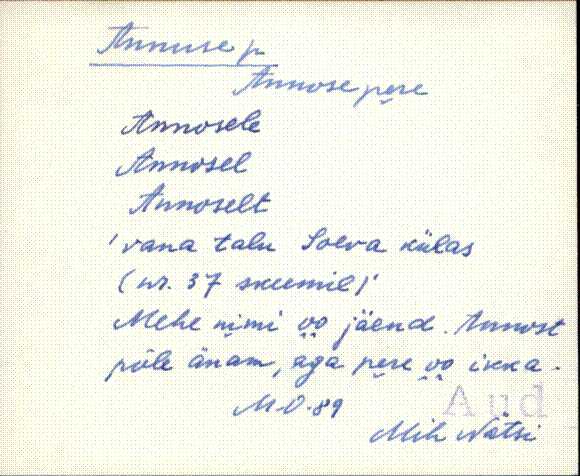 Annuse p
Annose pere
Annosele
Annosel
Annoselt
'vana talu Soeva külas
(nr. 37 skeemil)'
Mehe nimi oo jäend. Annost
põle änam, aga pere oo ikka.
M.O. 89
Aud
Mih Nätsi